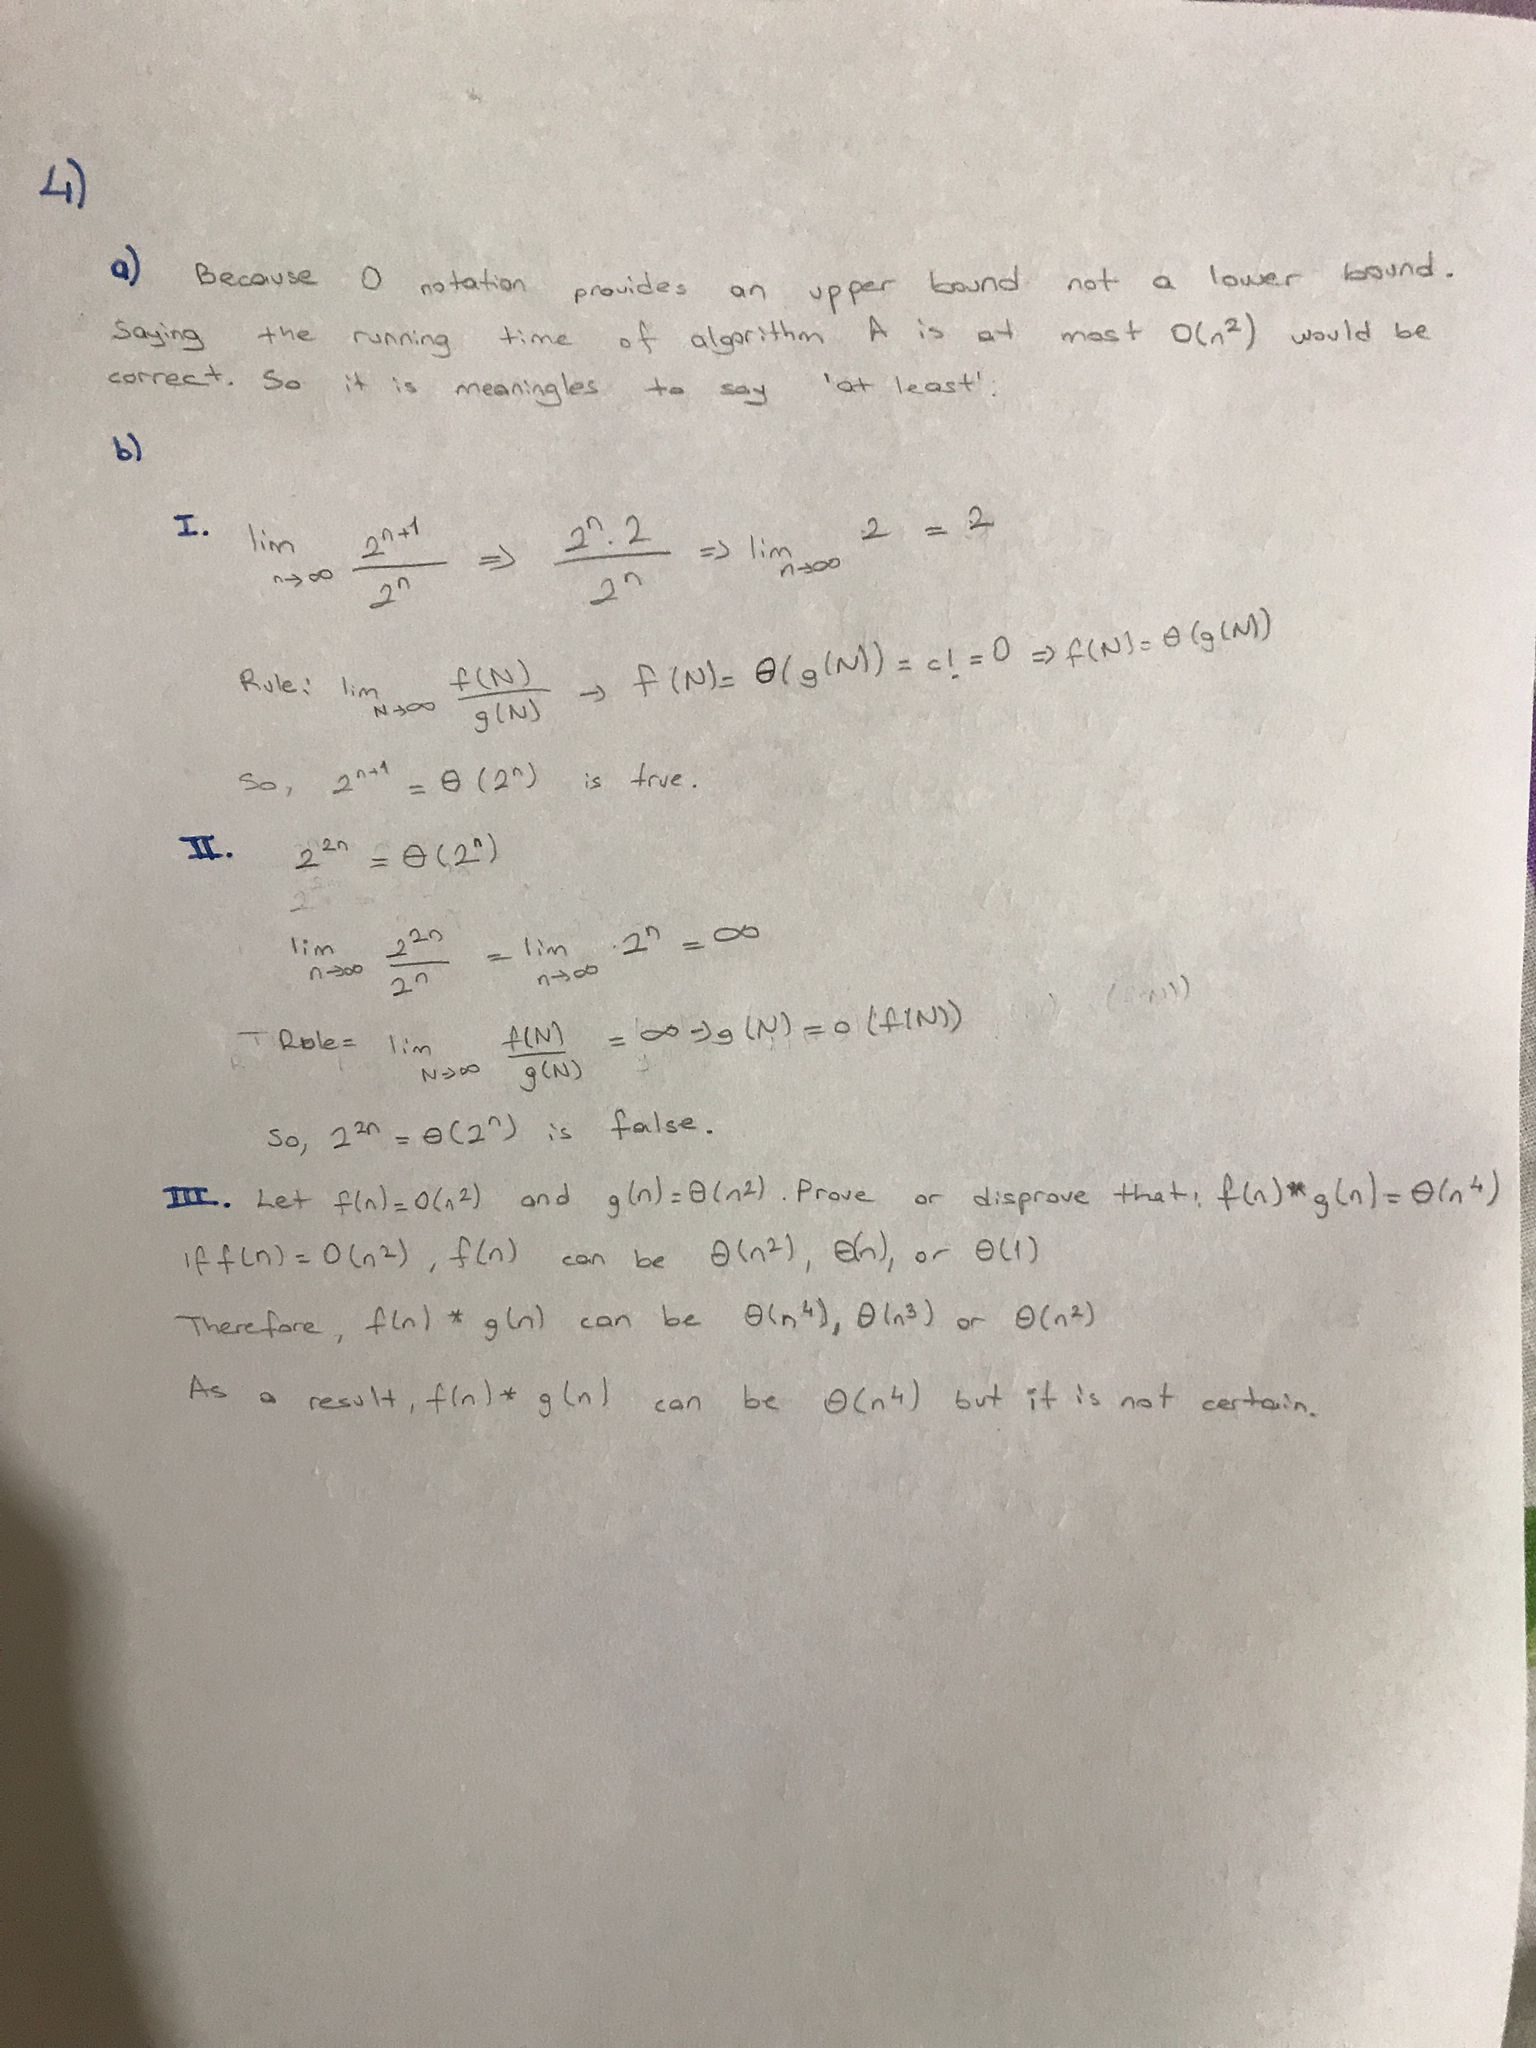 4)
a) Because O notation provides an upper bound not a lower bound.
Saying the running time of algorithm A is at most O(n²) would be
correct. So it is meaningles to say 'at least'.
b)
I. lim n→∞ 2ⁿ⁺¹/2ⁿ ⇒ 2ⁿ.2/2ⁿ ⇒ lim n→∞ 2 = 2
Rule: lim N→∞ f(N)/g(N) → f(N) = θ(g(N)) = c! = 0 ⇒ f(N) = θ(g(N))
So, 2ⁿ⁺¹ = θ(2ⁿ) is true.
II. 2²ⁿ = θ(2ⁿ)
lim n→∞ 2²ⁿ/2ⁿ = lim n→∞ 2ⁿ = ∞
Rule= lim N→∞ f(N)/g(N) = ∞ ⇒ g(N) = o(f(N))
So, 2²ⁿ = θ(2ⁿ) is false.
III. Let f(n)=O(n²) and g(n)=θ(n²). Prove or disprove that: f(n)*g(n)=θ(n⁴)
if f(n)=O(n²), f(n) can be θ(n²), θ(n), or θ(1)
Therefore, f(n) * g(n) can be θ(n⁴), θ(n³) or θ(n²)
As a result, f(n)* g(n) can be θ(n⁴) but it is not certain.